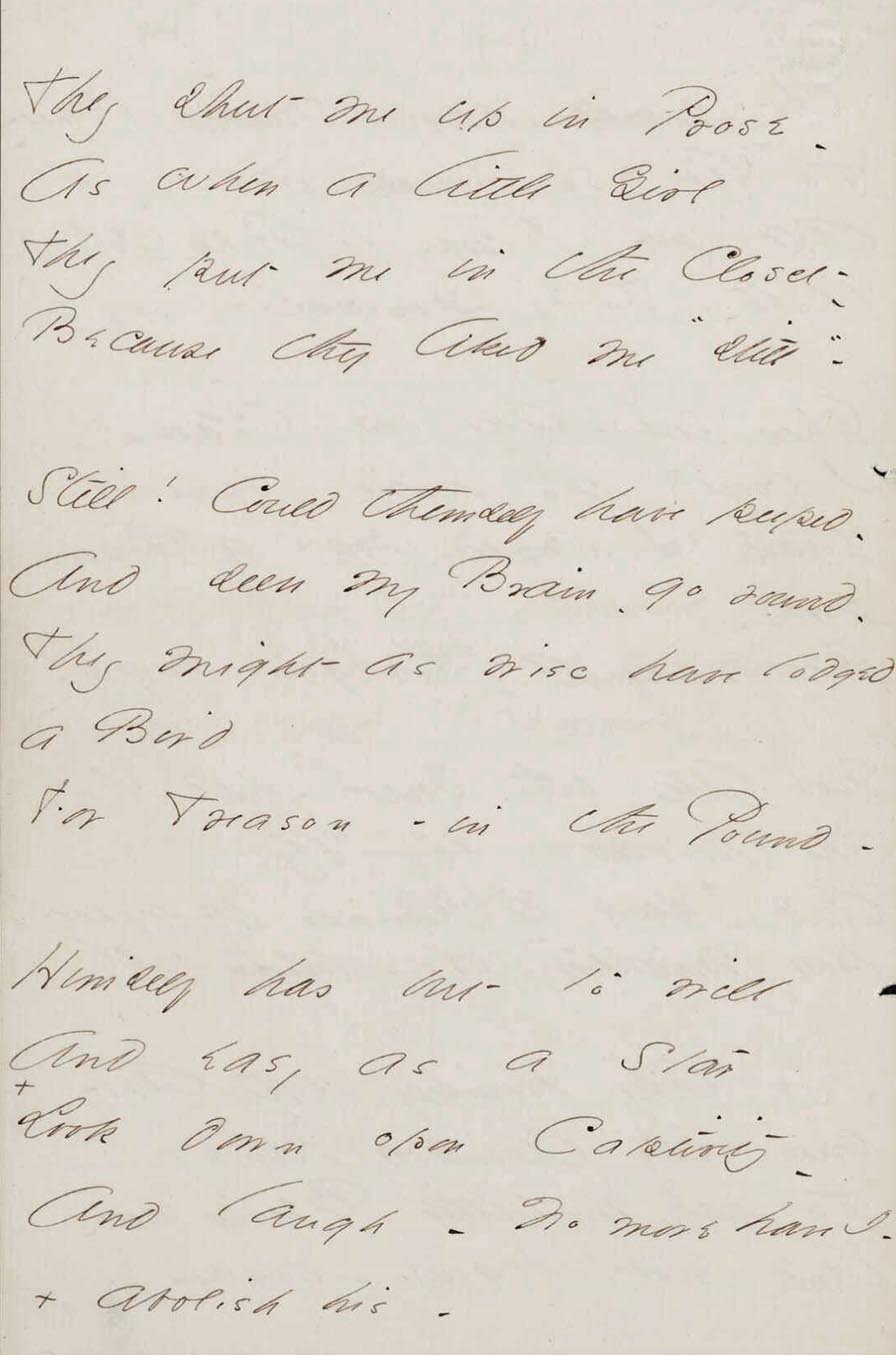 They shut me up in Prose -
As when a little Girl
They put me in the Closet -
Because they liked me "still" -
Still! Could themself have peeped -
And seen my Brain - go round -
They might as wise have lodged
a Bird
For Treason - in the Pound -
Himself has but to will
And easy as a Star
+
Look down opon Captivity -
And laugh - No more have I -
+ Abolish his -